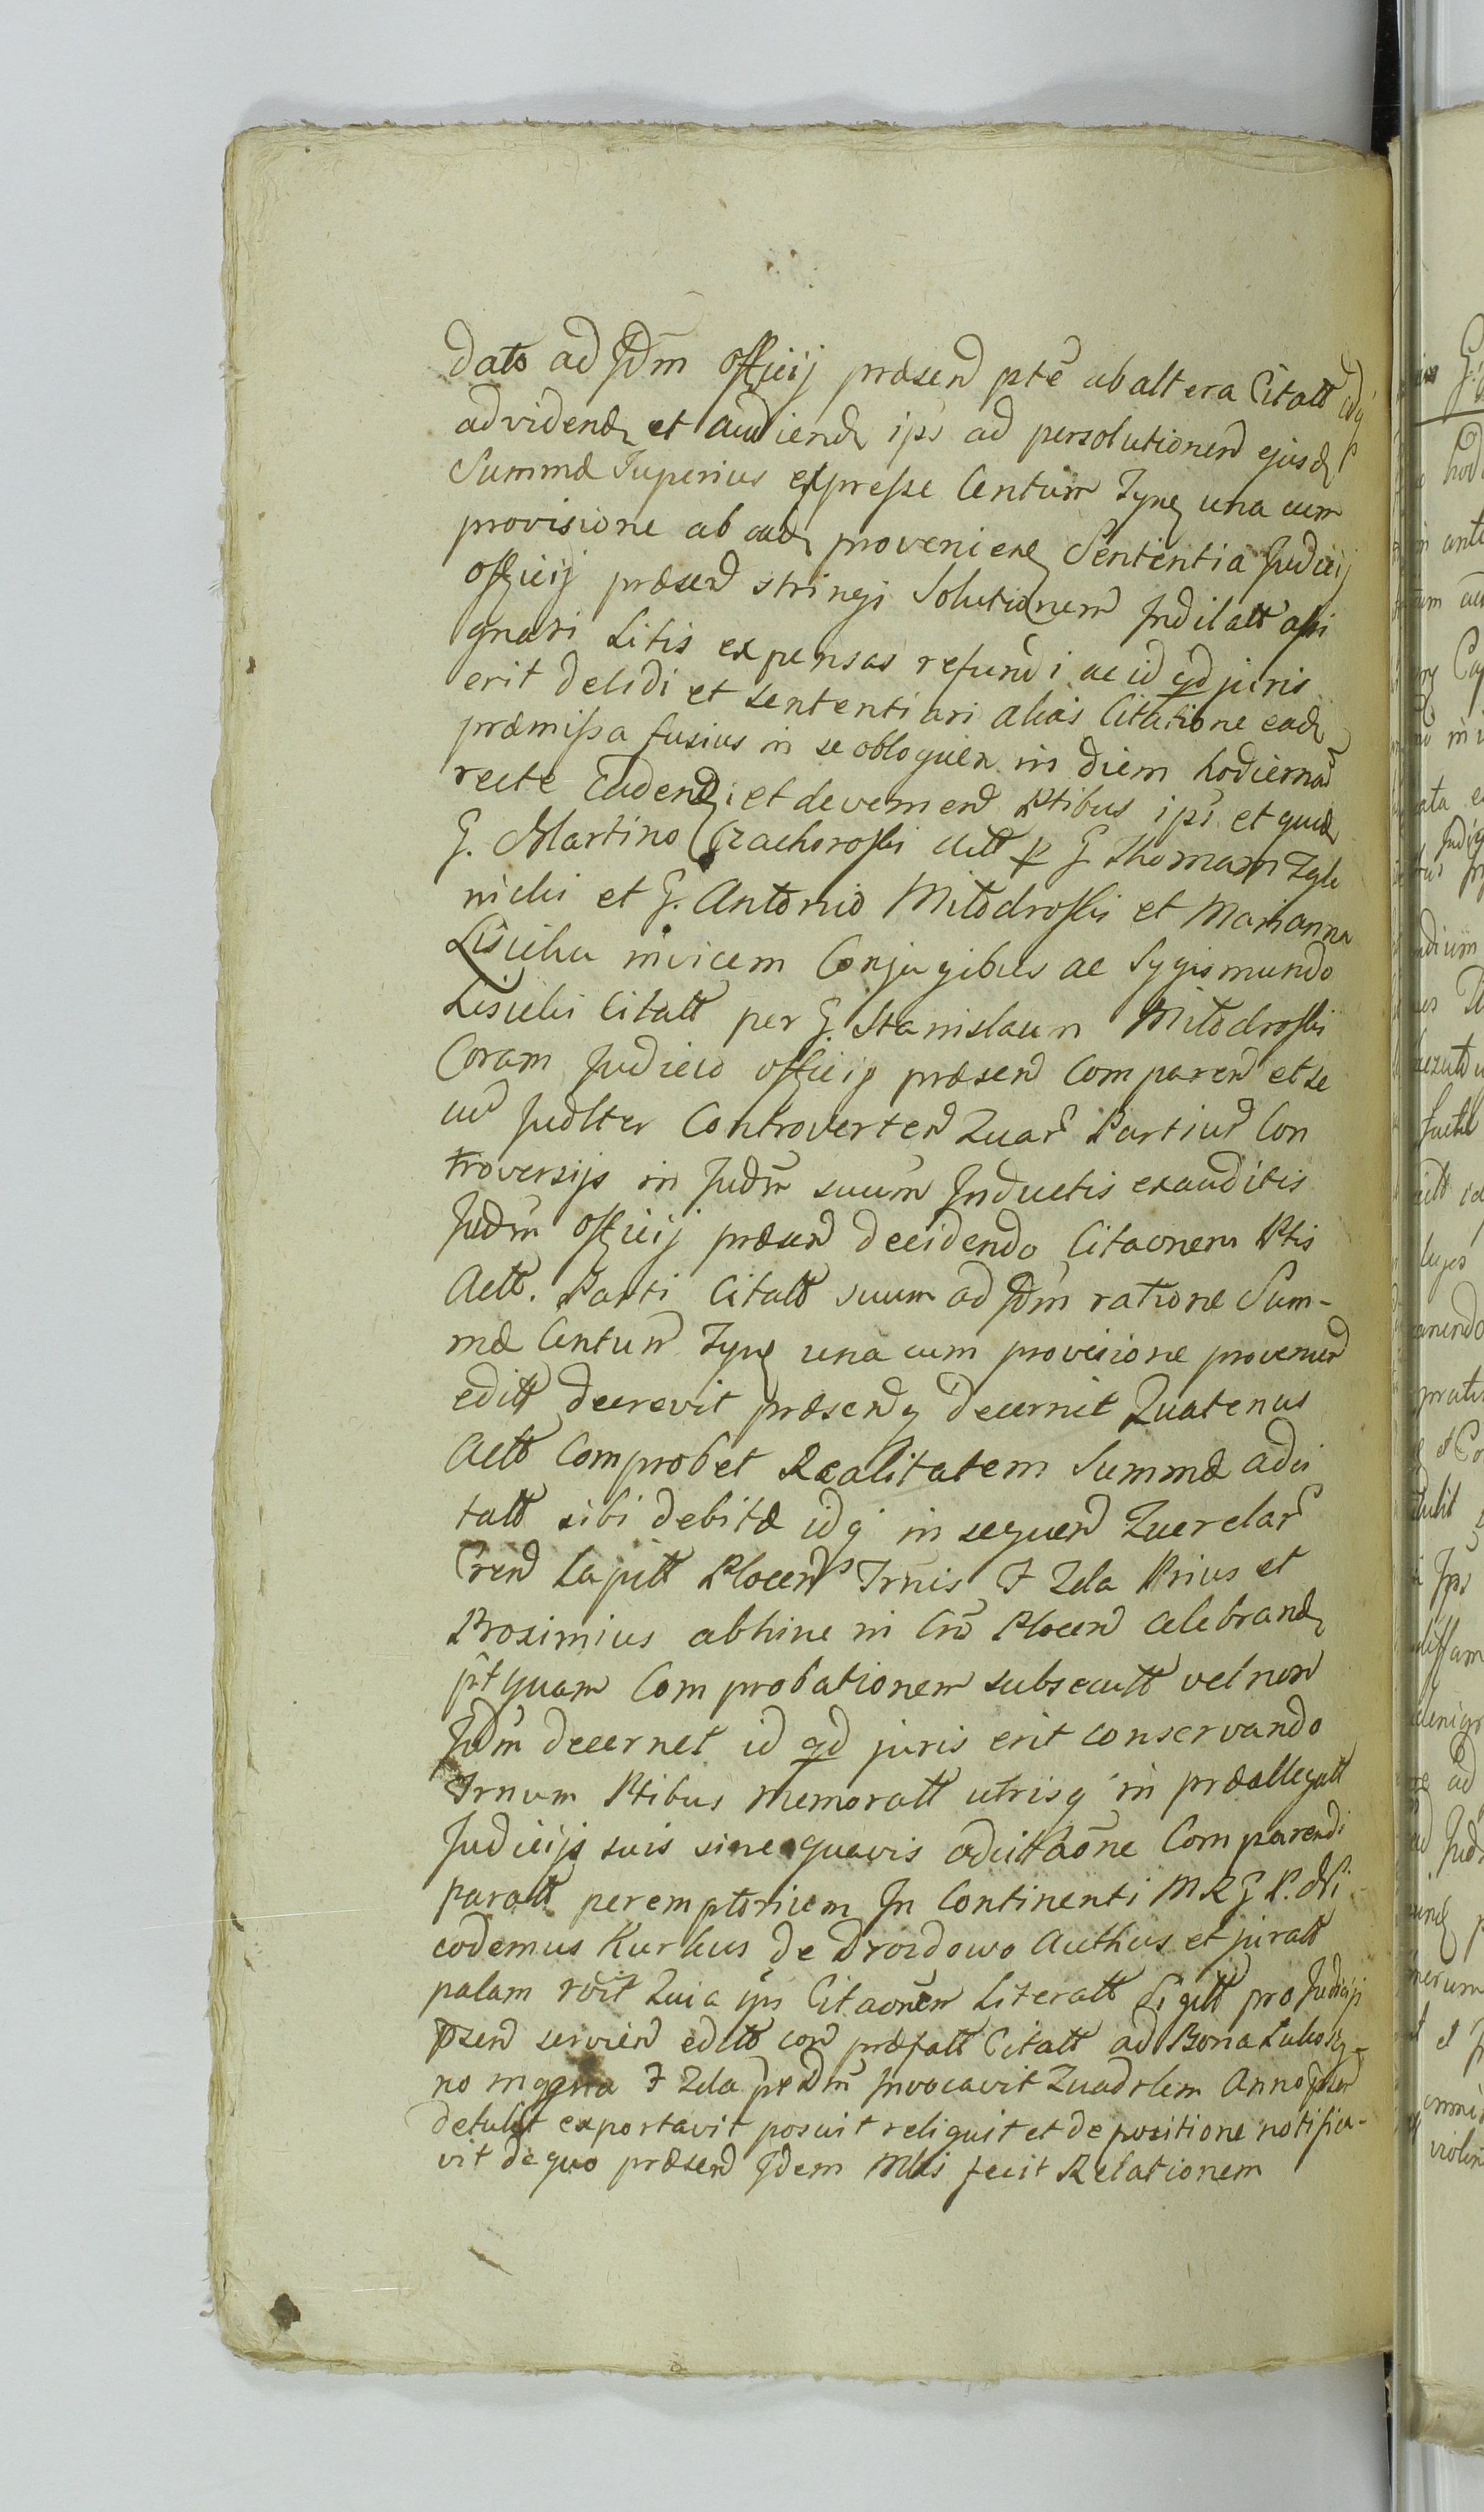 dato ad Jdm Officij præsen pte ab altera Citatt idq
ad videnđ et audienđ ips ad persolutionem ejusđ
Summæ Superius expresse Centum Tynf una cum
provisione ab eađ provenienđ Sententia Judicij
Officij præsen stringi Solutionem Indilatt assi
gnari Litis expensas refundi ac id qd juris
erit decidi et sententiari alias Citatione eađ
præmissa fusius in se obloquen in diem hodierna
recte Cadenđ et devenien Ptibus ips et quiđ
G. Martino Czachoroski Actt p G. Thomam Zgli
nicki et G. Antonio Mitodroski et Marianna
Lisicka invicem Conjugibus ac Sygismundo
Lisicki Citatt per G. Stanislaum Mitodroski
Coram Judicio Officij præsen Comparen et se
cu Judlter Controverten Quar Partiu Con
troversijs in Judm suum Inductis exauditis
Judm Officij præsen decidendo Citaonem Ptis
Actt. Parti Citatt suum ad Jdm ratione Sum-
mæ Centum Tynf una cum provisione provenien
editt decrevit præsenq decernit Quatenus
Actt Comprobet Realitatem Summæ adci
tatt sibi debitæ idq in sequen Querelar
Cren Capitt Plocen Trnis F Zda Prius et
Proximius abhinc in Cro Plocen celebranđ
pt quam Comprobationem subsecutt vel non
Jdm decernet id qd juris erit conservando
Trnum Ptibus memoratt utrisq in præallegatt
Judicijs suis sine quavis adcittaone Comparendi
paratt peremptorium In Continenti MRGP. Ni
codemus Kurkus de Drozdowo Authus et juratt
palam rcit Quia ips Citaonem Literatt Sigitt pro Judicijs
pzen servien editt con præfatt Citatt ad Bona
no F Zda p Invocavit Quadrlem Anno pzen
detulit exportavit posuit reliquit et de positione notifica-
vit de quo præsen Jdem Mlis fecit Relationem